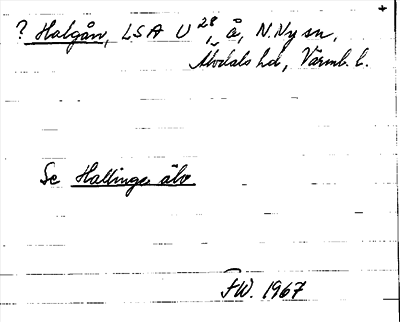 +
? Halgån, LSA U 28, å, N. Ny sn,
Älvdals hd, Värml. l.
Se Hallinge älv
FW. 1967